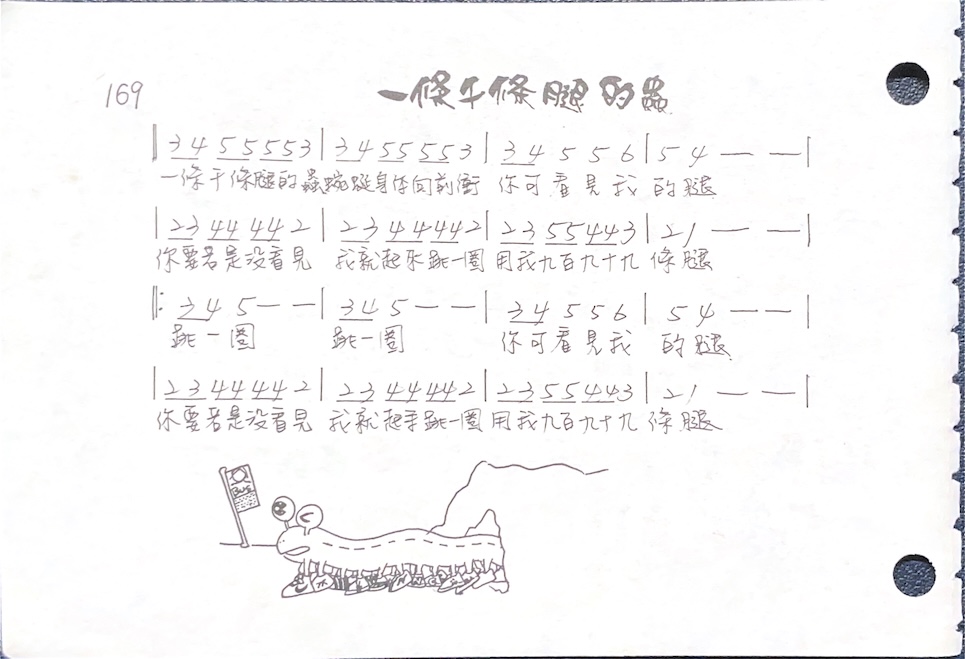 169
一條千條腿的蟲
‖ 3 4 5 5 5 5 3 | 3 4 5 5 5 5 3 | 3 4 5 5 6 | 5 4 — — |
一條千條腿的蟲蜿蜒身体向前衝 你可看見我 的腿
| 2 3 4 4 4 4 2 | 2 3 4 4 4 4 2 | 2 3 5 5 4 4 3 | 2 1 — — |
你要若是没看見 我就起來跳一圈 用我九百九十九 條腿
‖: 3 4 5 — — | 3 4 5 — — | 3 4 5 5 6 | 5 4 — — |
跳一圈 跳一圈 你可看見我 的腿
| 2 3 4 4 4 4 2 | 2 3 4 4 4 4 2 | 2 3 5 5 4 4 3 | 2 1 — — |
你要若是没看見 我就起來跳一圈 用我九百九十九 條腿
BUS